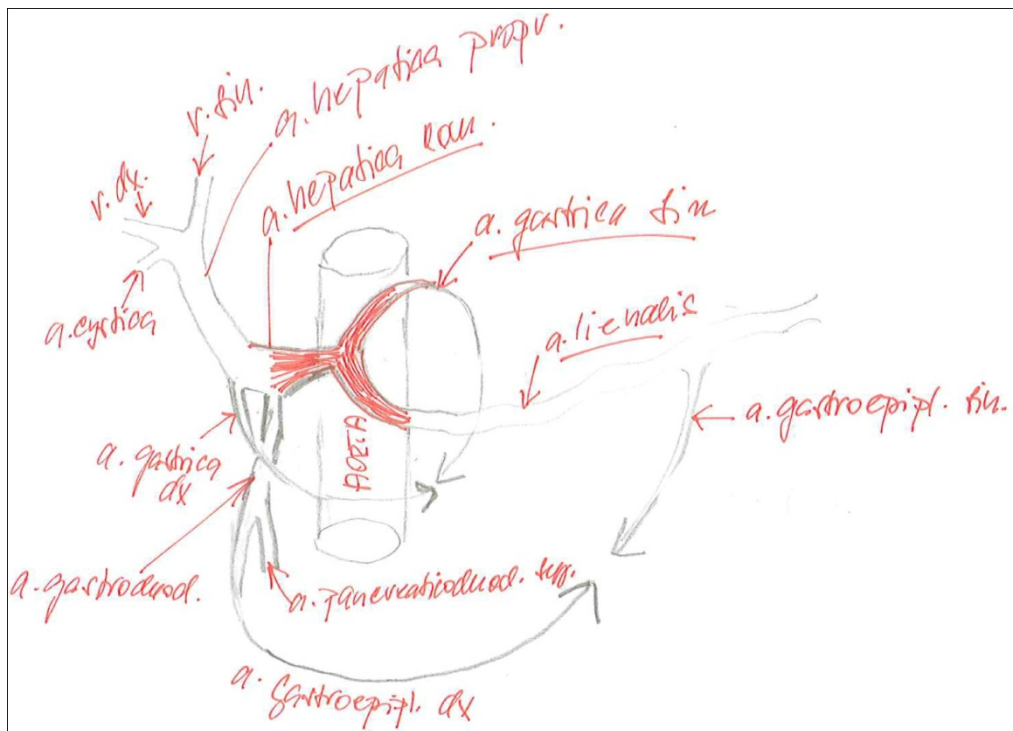 r. sin.
a. hepatica propr.
r. dx.
a. hepatica com.
a. gastrica sin
a. cystica
a. lienalis
a. gastroepipl. sin.
AORTA
a. gastrica
dx
a. gastroduod.
a. pancreaticoduod. sup.
a.
gastroepipl. dx